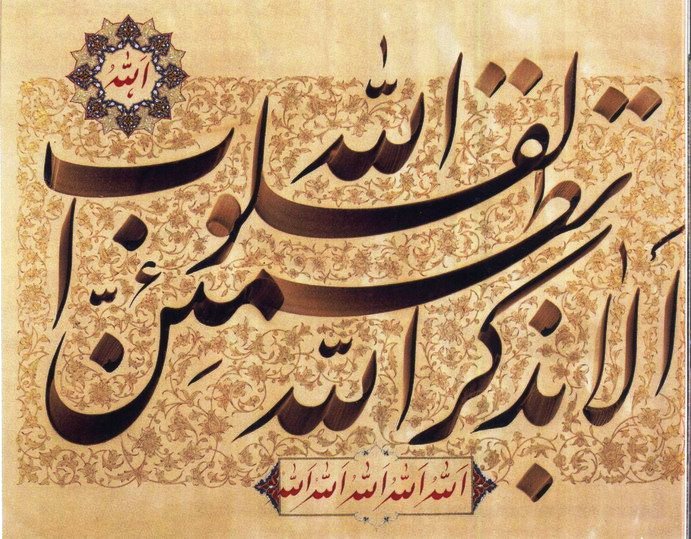 الله
الله
ألا بذكر الله تطمئنّ القلوب
الله الله الله الله الله